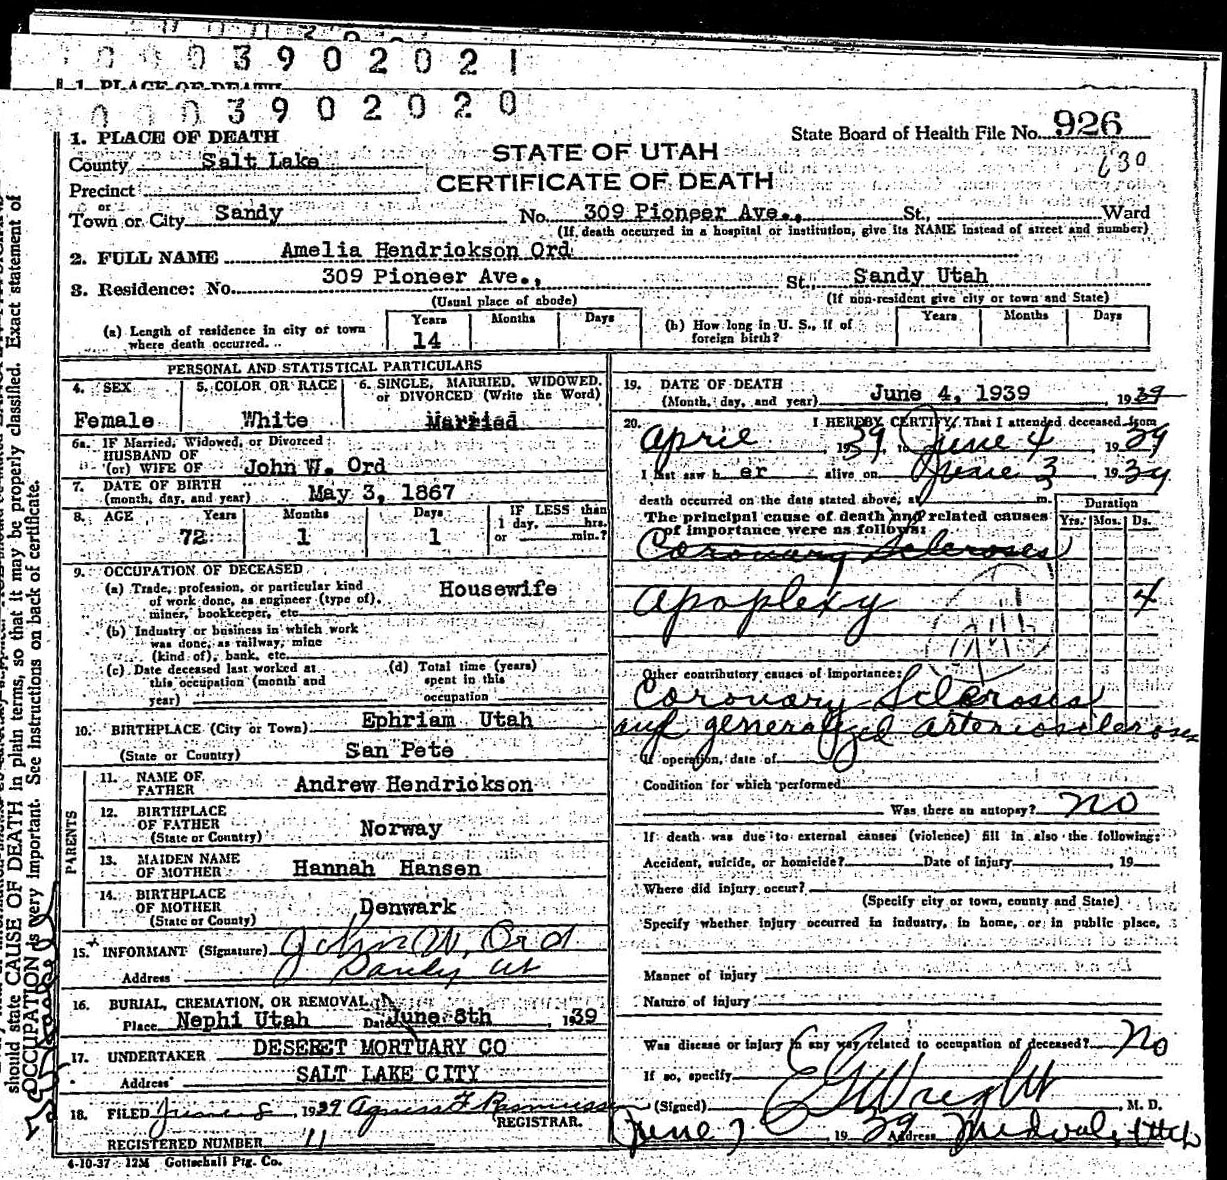 0 0 0 3 9 0 2 0 2 1
1. PLACE OF DEATH
0 0 0 3 9 0 2 0 2 0
1. PLACE OF DEATH
State Board of Health File No. 926
County Salt Lake
STATE OF UTAH
630
Precinct
CERTIFICATE OF DEATH
or
Town or City Sandy No. 309 Pioneer Ave., St., Ward
(If death occurred in a hospital or institution, give its NAME instead of street and number)
2. FULL NAME Amelia Hendrickson Ord
3. Residence: No. 309 Pioneer Ave., St., Sandy Utah
(Usual place of abode) (If non-resident give city or town and State)
(a) Length of residence in city or town where death occurred. Years 14 Months Days
(b) How long in U. S., if of foreign birth? Years Months Days
PERSONAL AND STATISTICAL PARTICULARS
4. SEX Female
5. COLOR OR RACE White
6. SINGLE, MARRIED, WIDOWED, or DIVORCED (Write the Word) Married
6a. IF Married, Widowed, or Divorced
HUSBAND OF
(or) WIFE OF John W. Ord
7. DATE OF BIRTH
(month, day, and year) May 3, 1867
8. AGE Years 72 Months 1 Days 1 IF LESS than 1 day, hrs. or min.?
9. OCCUPATION OF DECEASED
(a) Trade, profession, or particular kind of work done, as engineer (type of), miner, bookkeeper, etc. Housewife
(b) Industry or business in which work was done, as railway, mine (kind of), bank, etc.
(c) Date deceased last worked at this occupation (month and year)
(d) Total time (years) spent in this occupation
10. BIRTHPLACE (City or Town) Ephriam Utah
(State or Country) San Pete
PARENTS
11. NAME OF FATHER Andrew Hendrickson
12. BIRTHPLACE OF FATHER (State or Country) Norway
13. MAIDEN NAME OF MOTHER Hannah Hansen
14. BIRTHPLACE OF MOTHER (State or County) Denwark
15. INFORMANT (Signature) John W. Ord
Address Sandy Ut
16. BURIAL, CREMATION, OR REMOVAL
Place Nephi Utah Date June 8th, 1939
17. UNDERTAKER DESERET MORTUARY CO
Address SALT LAKE CITY
18. FILED June 8, 1939 Agness F Rasmussen
REGISTRAR.
REGISTERED NUMBER 11
4-10-37 12M Gottschall Ptg. Co.
19. DATE OF DEATH
(Month, day, and year) June 4, 1939, 1939
20. I HEREBY CERTIFY, That I attended deceased from
April 1939, to June 4, 1939
I last saw her alive on June 3 1939
death occurred on the date stated above, at m.
The principal cause of death and related causes of importance were as follows:
Duration
Yrs. Mos. Ds.
Coronary Scleroses
Apoplexy 4
Other contributory causes of importance:
Coronary Scleroses
and generalized arterioscleroses
If operation, date of
Condition for which performed
Was there an autopsy? no
If death was due to external causes (violence) fill in also the following:
Accident, suicide, or homicide? Date of injury, 19
Where did injury occur?
(Specify city or town, county and State)
Specify whether injury occurred in industry, in home, or in public place,
Manner of injury
Nature of injury
Was disease or injury in any way related to occupation of deceased? No
If so, specify
(Signed) E G Wright, M. D.
June 7 1939 Address Midvale, Utah
should state CAUSE OF DEATH in plain terms, so that it may be properly classified. Exact statement of
OCCUPATION is very important. See instructions on back of certificate.